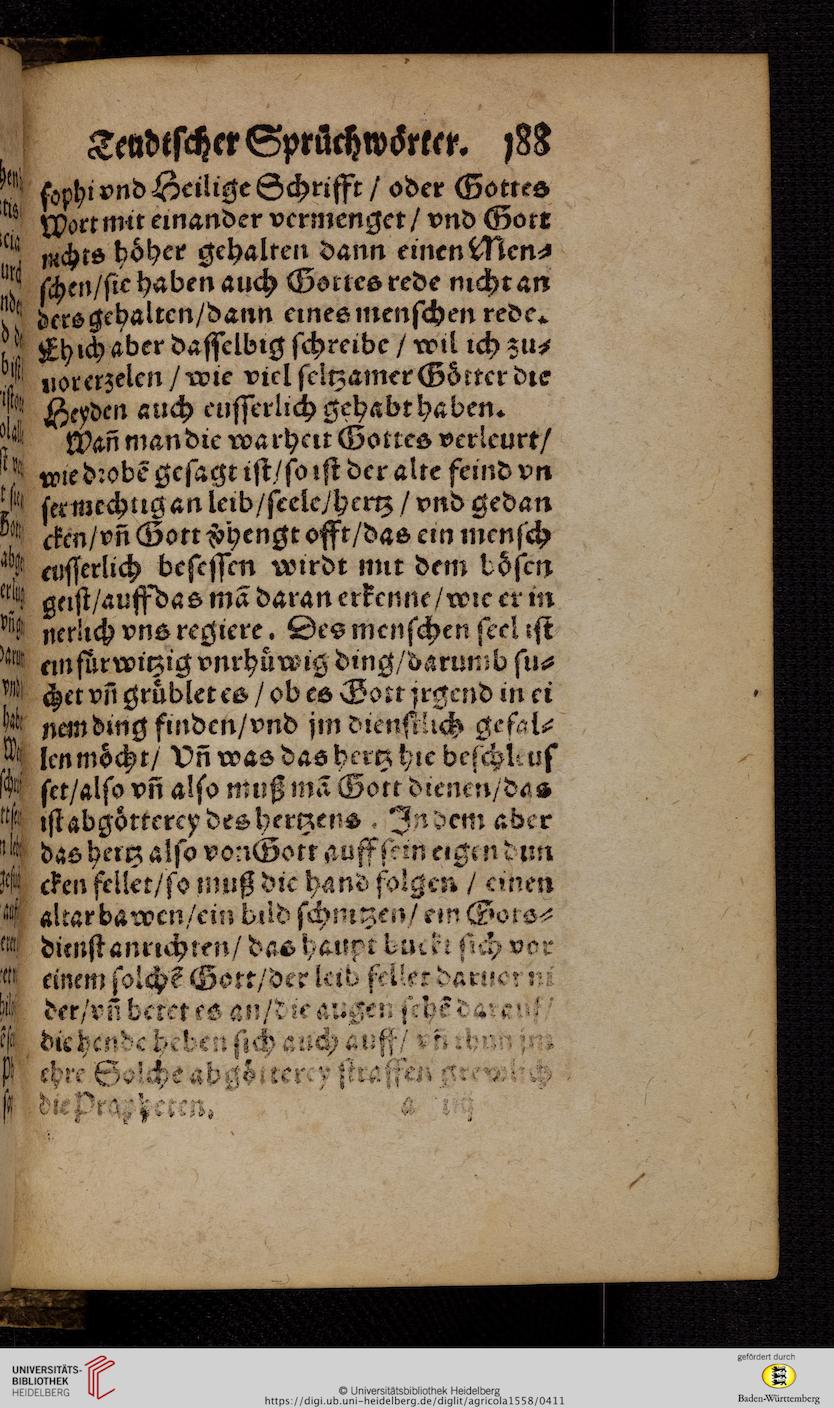 Teudtſcher Sprüchwörter. 188
ſophi vnd Heilige Schrifft / oder Gottes
Wort mit einander vermenget / vnd Gott
nichts höher gehalten dann einen Men⸗
ſchen/ſie haben auch Gottes rede nicht an
ders gehalten/dann eines menſchen rede.
Eh ich aber daſſelbig ſchreibe / wil ich zu⸗
uor erzelen / wie viel ſeltzamer Götter die
Heyden auch euſſerlich gehabt haben.
Wañ man die warheit Gottes verleurt/
wie drobẽ geſagt iſt/ſo iſt der alte feind vn
ſer mechtig an leib/ſeele/hertz / vnd gedan
cken/vñ Gott v̈hengt offt/das ein menſch
euſſerlich beſeſſen wirdt mit dem böſen
geiſt/auff das mã daran erkenne/wie er in
nerlich vns regiere. Des menſchen ſeel iſt
ein fürwitzig vnrhüwig ding/darumb ſu⸗
chet vñ grüblet es / ob es Gott jrgend in ei
nem ding finden/vnd jm dienſtlich gefal⸗
len möcht/ Vñ was das hertz hie beſchleuſ
ſet/alſo vñ alſo muß mã Gott dienen/das
iſt abgötterey des hertzens . In dem aber
das hertz alſo von Gott auff ſein eigen dun
cken fellet/ſo muß die hand folgen / einen
altar bawen/ein bild ſchnitzen/ ein Gots⸗
dienſt anrichten/ das haupt buckt ſich vor
einem ſolchẽ Gott/der leib fellet daruor ni
der/vñ betet es an/die augen ſehẽ darauff/
die hende heben ſich auch auff/ vñ thun jm
ehre Solche abgötterey ſtraffen grewlich
die Propheten. a iiij
UNIVERSITÄTS-
BIBLIOTHEK
HEIDELBERG
© Universitätsbibliothek Heidelberg
https://digi.ub.uni-heidelberg.de/diglit/agricola1558/0411
gefördert durch
Baden-Württemberg